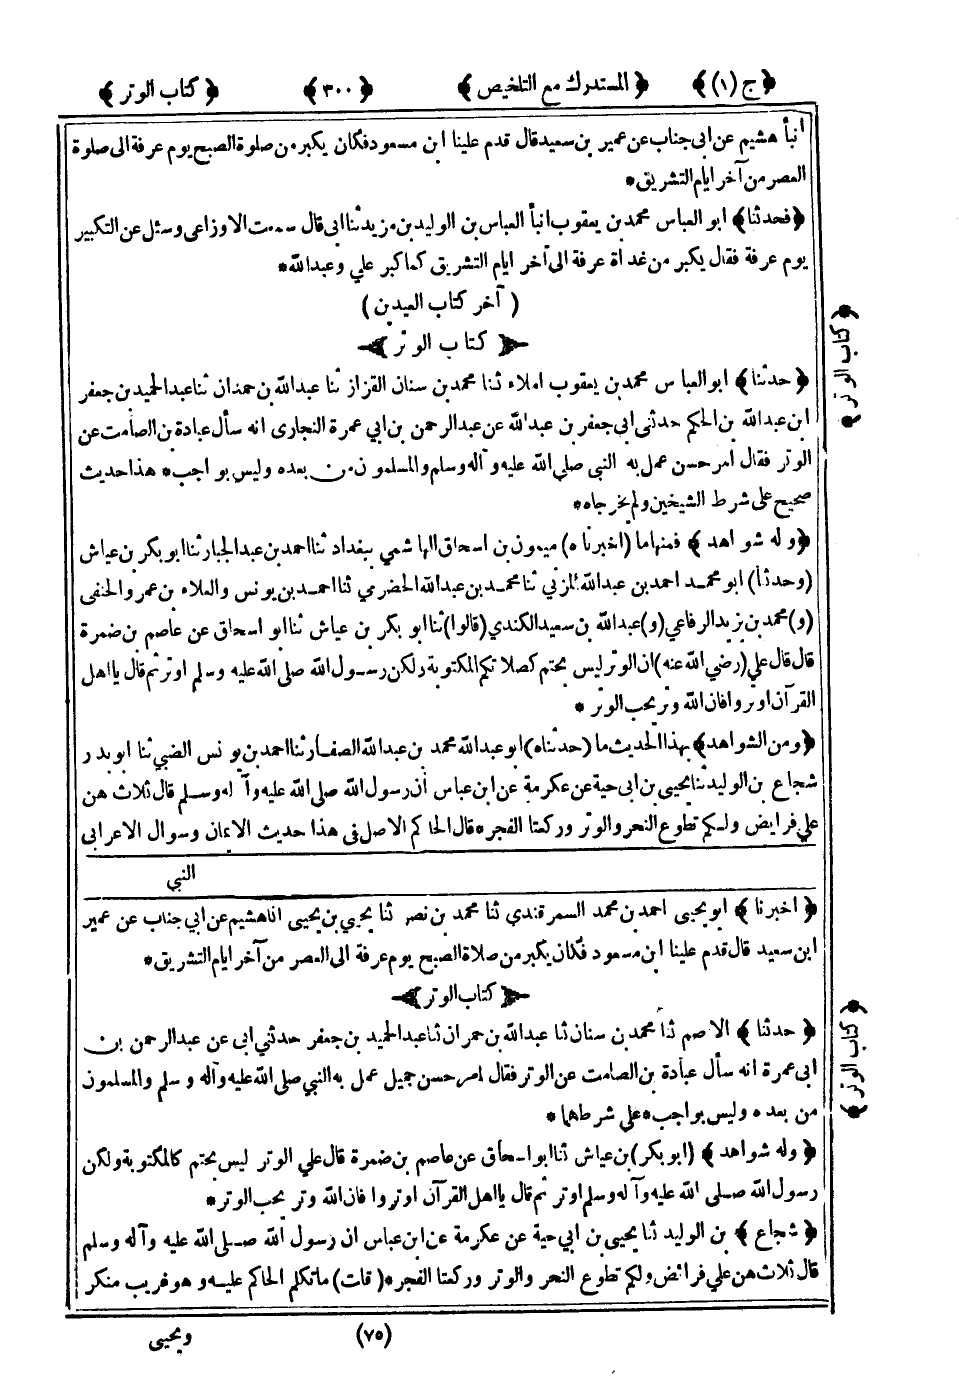 ﴿ ج (١) ﴾ ﴿ المستدرك مع التلخيص ﴾ ﴿ ٣٠٠ ﴾ ﴿ كتاب الوتر ﴾
انبأ هشيم عن ابى جناب عن عمير بن سعيد قال قدم علينا ابن مسعود فكان يكبر من صلوة الصبح يوم عرفة الى صلوة
العصر من آخر ايام التشريق *
﴿ فحدثنا ﴾ ابو العباس محمد بن يعقوب انبأ العباس بن الوليد بن مزيد ثنا ابى قال سمعت الاوزاعى وسئل عن التكبير
يوم عرفة فقال يكبر من غداة عرفة الى آخر ايام التشريق كما كبر علي وعبد الله *
( آخر كتاب العيدين )
كتاب الوتر
﴿ حدثنا ﴾ ابو العباس محمد بن يعقوب املاء ثنا محمد بن سنان القزاز ثنا عبد الله بن حمدان ثنا عبد الحميد بن جعفر
ابن عبد الله بن الحكم حدثنى ابى جعفر بن عبد الله عن عبد الرحمن بن ابي عمرة النجارى انه سأل عبادة بن الصامت عن
الوتر فقال امر حسن عمل به النبي صلى الله عليه وآله وسلم والمسلمون من بعده وليس بواجب * هذا حديث
صحيح على شرط الشيخين ولم يخرجاه *
﴿ وله شواهد ﴾ فمنها ما (اخبرناه) ميمون بن اسحاق الهاشمي ببغداد ثنا احمد بن عبد الجبار ثنا ابو بكر بن عياش
(وحدثنا) ابو محمد احمد بن عبد الله المزني ثنا محمد بن عبد الله الحضرمي ثنا احمد بن يونس والعلاء بن عمرو الحنفى
(و) محمد بن يزيد الرفاعي (و) عبد الله بن سعيد الكندي (قالوا) ثنا ابو بكر بن عياش ثنا ابو اسحاق عن عاصم بن ضمرة
قال قال علي (رضي الله عنه) ان الوتر ليس بحتم كصلاتكم المكتوبة ولكن رسول الله صلى الله عليه وسلم اوتر ثم قال يا اهل
القرآن اوتروا فان الله وتر يحب الوتر *
﴿ ومن الشواهد ﴾ بهذا الحديث ما (حدثناه) ابو عبد الله محمد بن عبد الله الصفار ثنا احمد بن يونس الضبي ثنا ابو بدر
شجاع بن الوليد ثنا يحيى بن ابى حية عن عكرمة عن ابن عباس أن رسول الله صلى الله عليه وآله وسلم قال ثلاث هن
علي فرايض ولكم تطوع النحر والوتر وركعتا الفجر * قال الحاكم الاصل فى هذا حديث الايمان وسوال الاعرابى
النبي
﴿ اخبرنا ﴾ ابو يحيى احمد بن محمد السمرقندي ثنا محمد بن نصر ثنا يحيي بن يحيى انا هشيم عن ابي جناب عن عمير
ابن سعيد قال قدم علينا ابن مسعود فكان يكبر من صلاة الصبح يوم عرفة الى العصر من آخر ايام التشريق *
كتاب الوتر
﴿ حدثنا ﴾ الاصم ثنا محمد بن سنان ثنا عبد الله بن حمران ثنا عبد الحميد بن جعفر حدثني ابى عن عبد الرحمن بن
ابى عمرة انه سأل عبادة بن الصامت عن الوتر فقال امر حسن جميل عمل به النبي صلى الله عليه وآله وسلم والمسلمون
من بعده وليس بواجب * على شرطهما *
﴿ وله شواهد ﴾ (ابو بكر) بن عياش ثنا ابو اسحاق عن عاصم بن ضمرة قال علي الوتر ليس بحتم كالمكتوبة ولكن
رسول الله صلى الله عليه وآله وسلم اوتر ثم قال يا اهل القرآن اوتروا فان الله وتر يحب الوتر *
﴿ شجاع ﴾ بن الوليد ثنا يحيى بن ابي حية عن عكرمة عن ابن عباس ان رسول الله صلى الله عليه وآله وسلم
قال ثلاث هن علي فرائض ولكم تطوع النحر والوتر وركعتا الفجر * (قلت) ما تكلم الحاكم عليه وهو غريب منكر
(٧٥) ويحيى
﴿ كتاب الوتر ﴾
﴿ كتاب الوتر ﴾